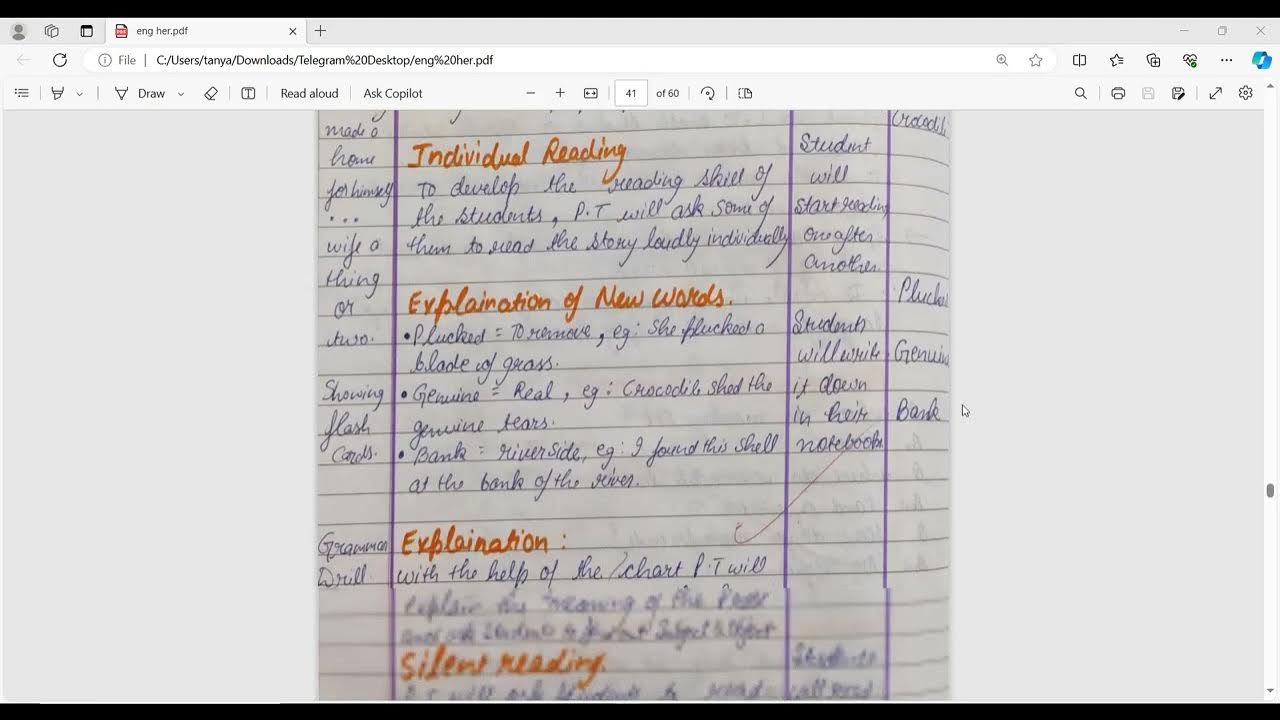 eng her.pdf
File
C:/Users/tanya/Downloads/Telegram%20Desktop/eng%20her.pdf
Draw
Read aloud
Ask Copilot
41
of 60
made a
home
for himself
...
wife a
thing
or
two.
Showing
flash
Cards.
Grammar
Drill
Individual Reading
To develop the reading skill of
the students, P.T will ask some of
them to read the story loudly individually
Explaination of New words.
• Plucked = To remove, eg: She plucked a
blade of grass.
• Genuine = Real, eg: Crocodile shed the
genuine tears.
• Bank = riverside, eg: I found this shell
at the bank of the river.
Explaination:
with the help of the chart P.T will
explain the meaning of the
Silent reading.
P.T will ask students to read
Student
will
start reading
one after
another.
Students
will write
it down
in their
notebook.
Students
will read
Crocodil
Plucke
Genuin
Bank